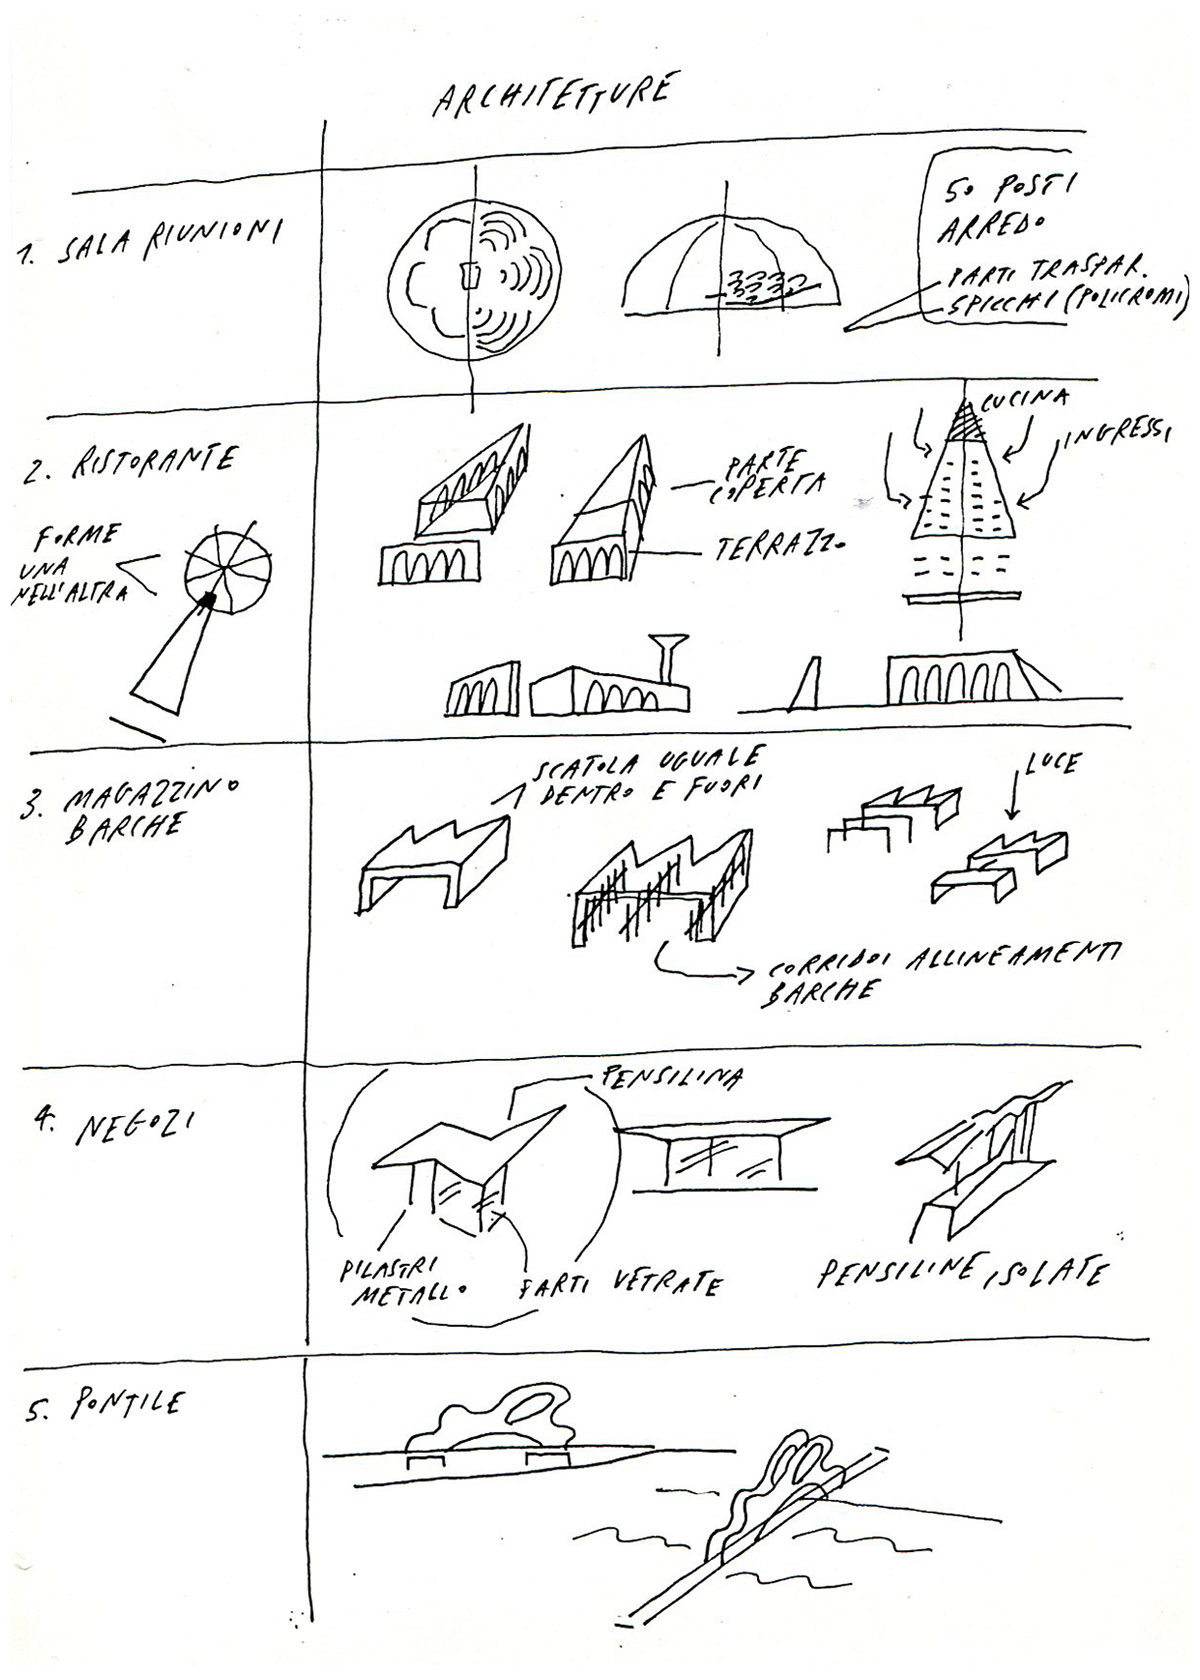 ARCHITETTURE
1. SALA RIUNIONI
50 POSTI
ARREDO
PARTI TRASPAR.
SPICCHI (POLICROMI)
2. RISTORANTE
FORME
UNA
NELL'ALTRA
PARTE
COPERTA
TERRAZZO
CUCINA
INGRESSI
3. MAGAZZINO
BARCHE
SCATOLA UGUALE
DENTRO E FUORI
LUCE
CORRIDOI ALLINEAMENTI
BARCHE
4. NEGOZI
PENSILINA
PILASTRI
METALLO
PARTI VETRATE
PENSILINE ISOLATE
5. PONTILE